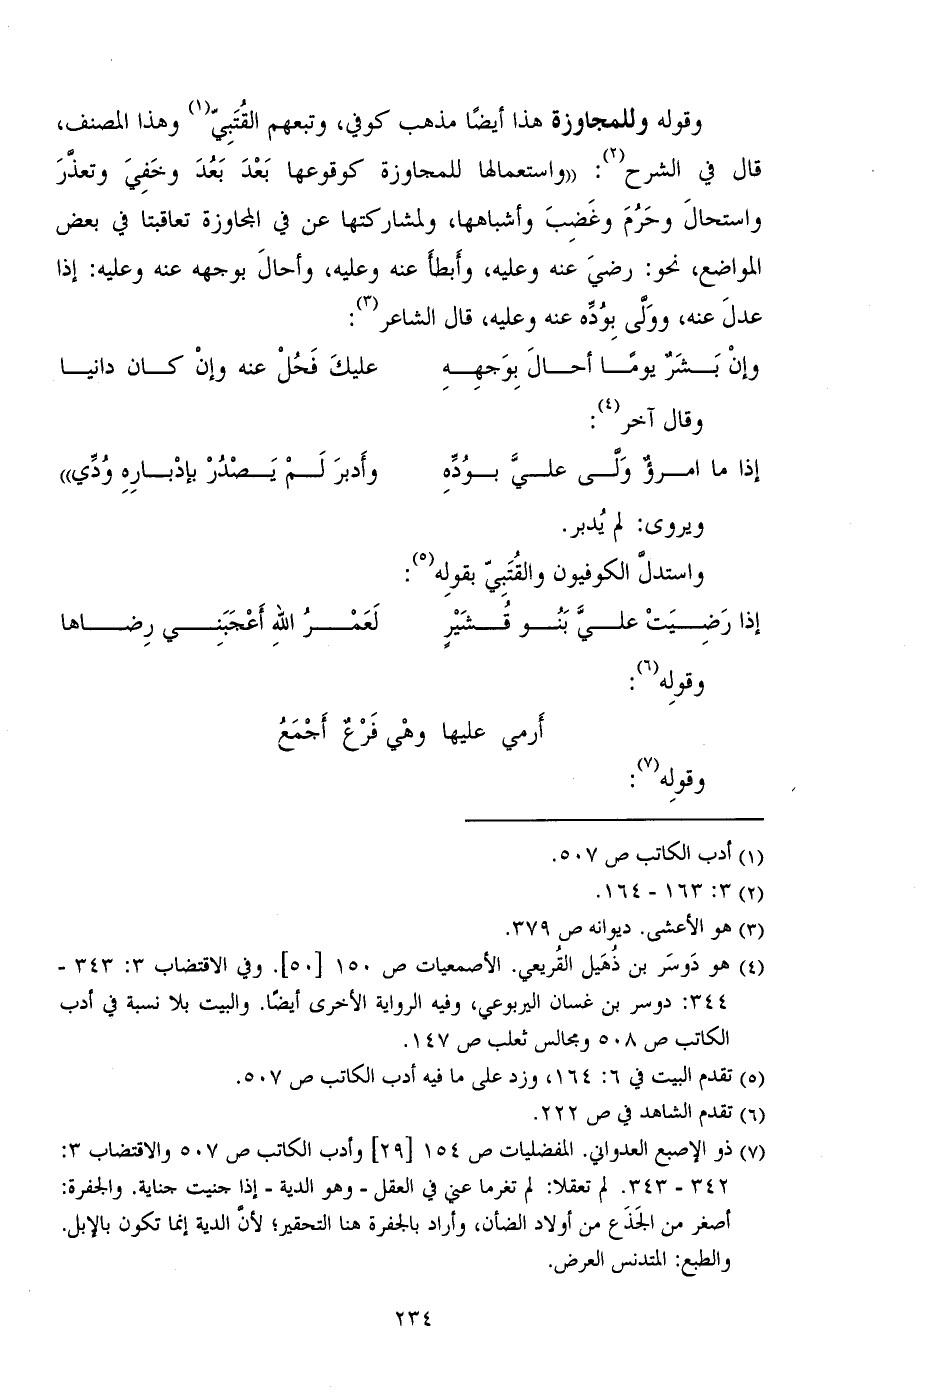 وقوله وللمجاوزة هذا أيضًا مذهب كوفي، وتبعهم القُتَبِيّ(١) وهذا المصنف،
قال في الشرح(٢): ((واستعمالها للمجاوزة كوقوعها بَعْدَ بَعُدَ وخَفِيَ وتعذَّرَ
واستحالَ وحَرُمَ وغَضِبَ وأشباهها، ولمشاركتها عن في المجاوزة تعاقبتا في بعض
المواضع، نحو: رضيَ عنه وعليه، وأَبطأَ عنه وعليه، وأحالَ بوجهه عنه وعليه: إذا
عدلَ عنه، وولَّى بِوُدِّه عنه وعليه، قال الشاعر(٣):
وإنْ بَــشَرٌ يومًــا أحــالَ بِوَجهِــهِ عليكَ فَحُلْ عنه وإنْ كــان دانيــا
وقال آخر(٤):
إذا ما امــرؤٌ وَلَّــى علــيَّ بــوُدِّهِ وأَدبرَ لَــمْ يَــصْدُرْ بإدْبــارِهِ وُدِّي))
ويروى: لم يُدبر.
واستدلَّ الكوفيون والقُتَبِيّ بقوله(٥):
إذا رَضِــيَتْ علــيَّ بَنُــو قُــشَيْرٍ لَعَمْــرُ اللهِ أَعْجَبَنِــي رِضــاها
وقولِه(٦):
أَرمي عليها وهْي فَرْعٌ أَجْمَعُ
وقولِه(٧):
(١) أدب الكاتب ص ٥٠٧.
(٢) ٣: ١٦٣ - ١٦٤.
(٣) هو الأعشى. ديوانه ص ٣٧٩.
(٤) هو دَوسَر بن ذُهَيل القُريعي. الأصمعيات ص ١٥٠ [٥٠]. وفي الاقتضاب ٣: ٣٤٣ -
٣٤٤: دوسر بن غسان اليربوعي، وفيه الرواية الأخرى أيضًا. والبيت بلا نسبة في أدب
الكاتب ص ٥٠٨ ومجالس ثعلب ص ١٤٧.
(٥) تقدم البيت في ٦: ١٦٤، وزد على ما فيه أدب الكاتب ص ٥٠٧.
(٦) تقدم الشاهد في ص ٢٢٢.
(٧) ذو الإصبع العدواني. المفضليات ص ١٥٤ [٢٩] وأدب الكاتب ص ٥٠٧ والاقتضاب ٣:
٣٤٢ - ٣٤٣. لم تعقلا: لم تغرما عني في العقل - وهو الدية - إذا جنيت جناية. والجفرة:
أصغر من الجَذَع من أولاد الضأن، وأراد بالجفرة هنا التحقير؛ لأنَّ الدية إنما تكون بالإبل.
والطبع: المتدنس العرض.
٢٣٤